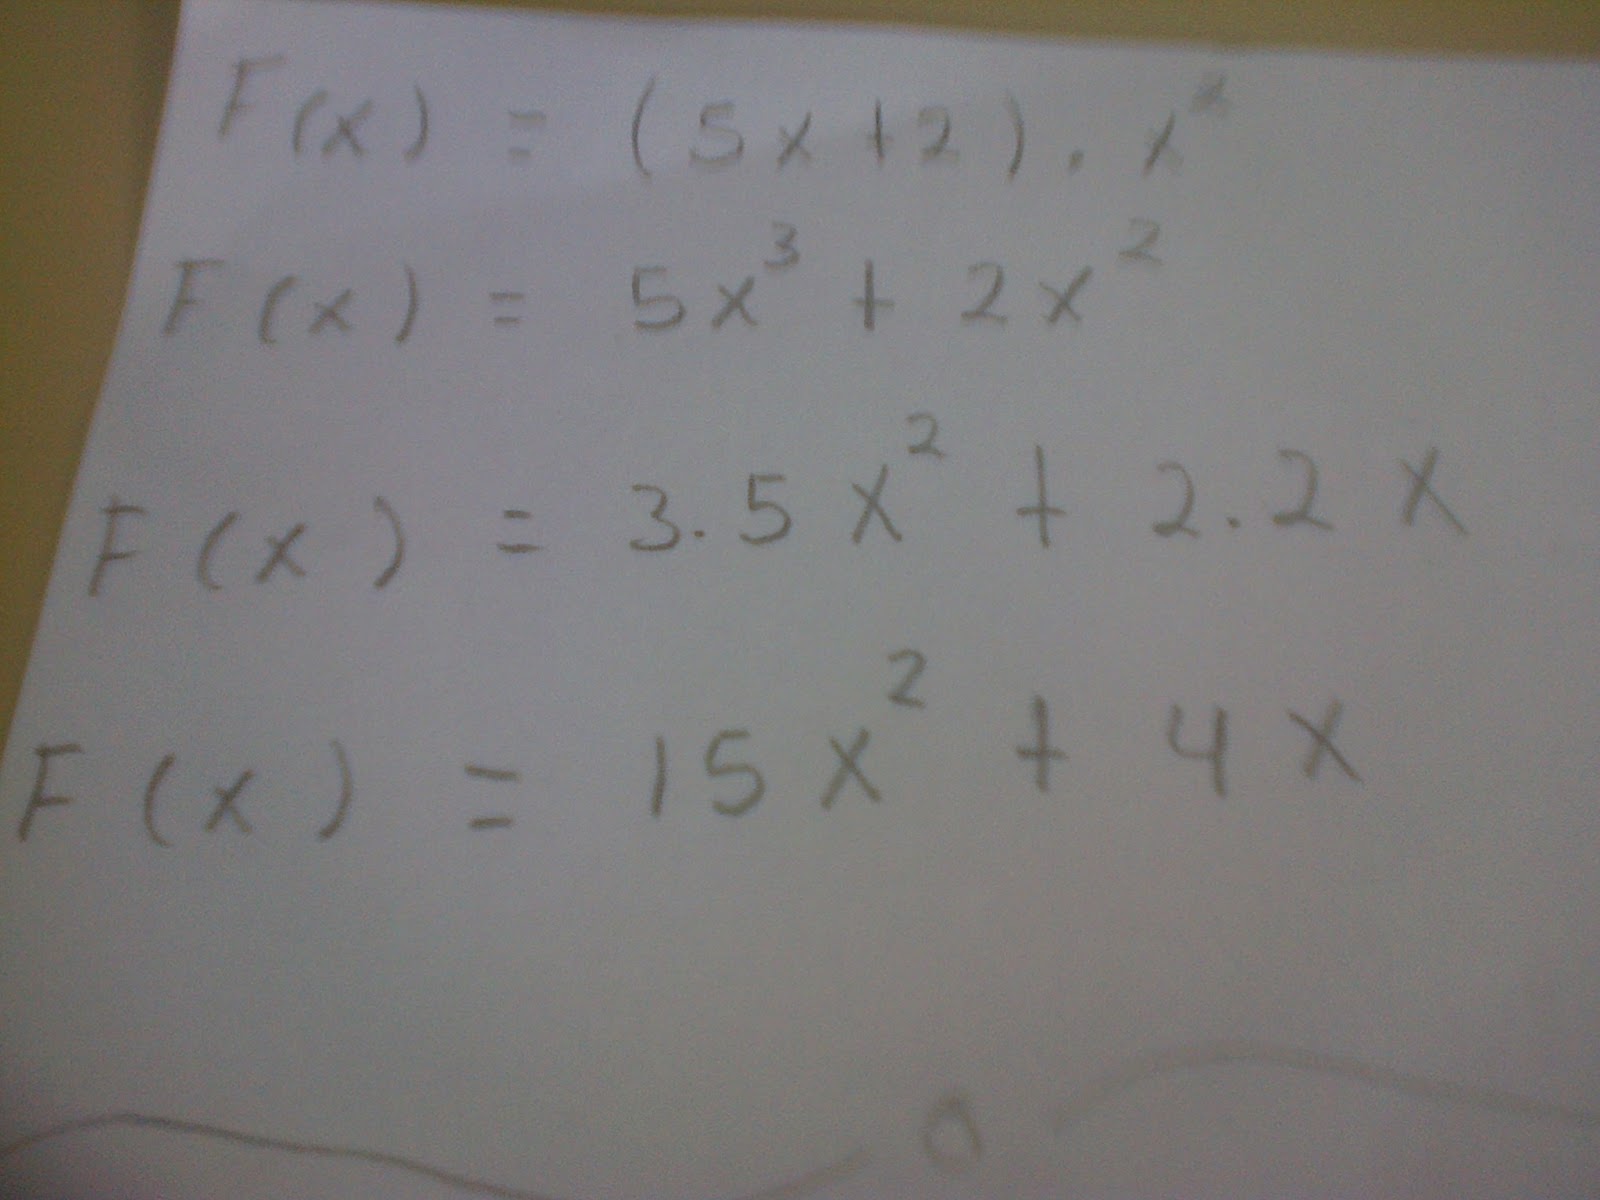 F(x) = (5x+2).x²
F(x) = 5x³ + 2x²
F(x) = 3.5x² + 2.2x
F(x) = 15x² + 4x